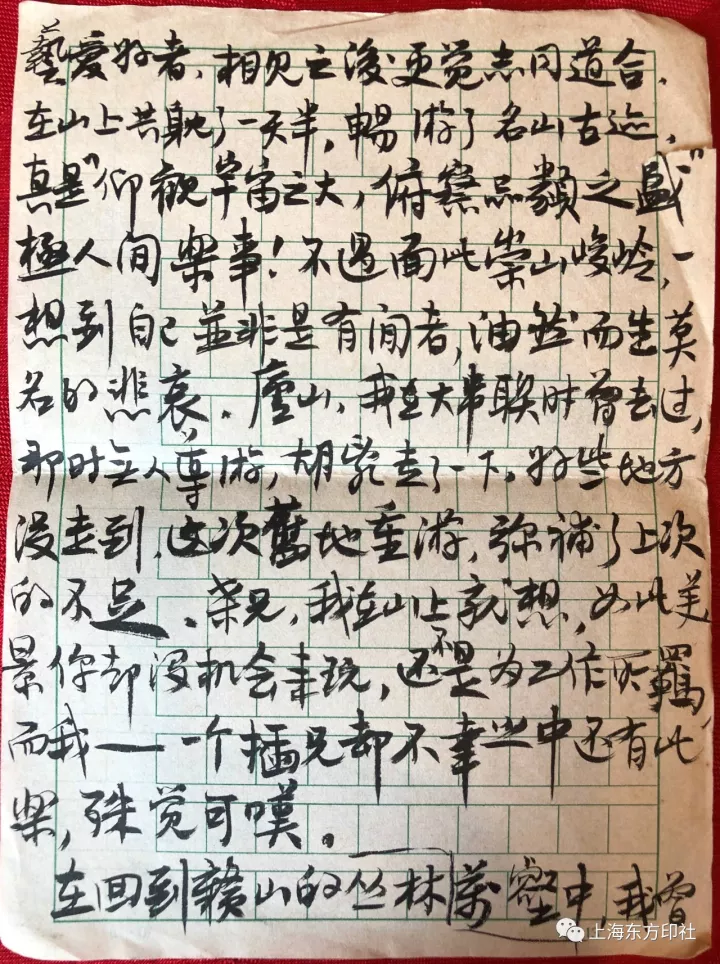 藝爱好者，相见之後更觉志同道合，
在山上共耽了一天半，暢游了名山古迹，
真是"仰觀宇宙之大，俯察品類之盛"
極人间樂事！不过面此崇山峻岭，一
想到自己並非是有闲者，油然而生莫
名的悲哀。廬山，我在大串联时曾去过，
那时无人導游，胡乱走了一下。好些地方
没走到，这次舊地重游，弥補了上次
的不足。荣兄，我在山上就想，如此美
景你却没机会来玩，还不是为工作所羈，
而我——一个插兄却不幸之中还有此
樂，殊觉可嘆。
在回到赣山的丛林萬壑中，我曾
上海东方印社